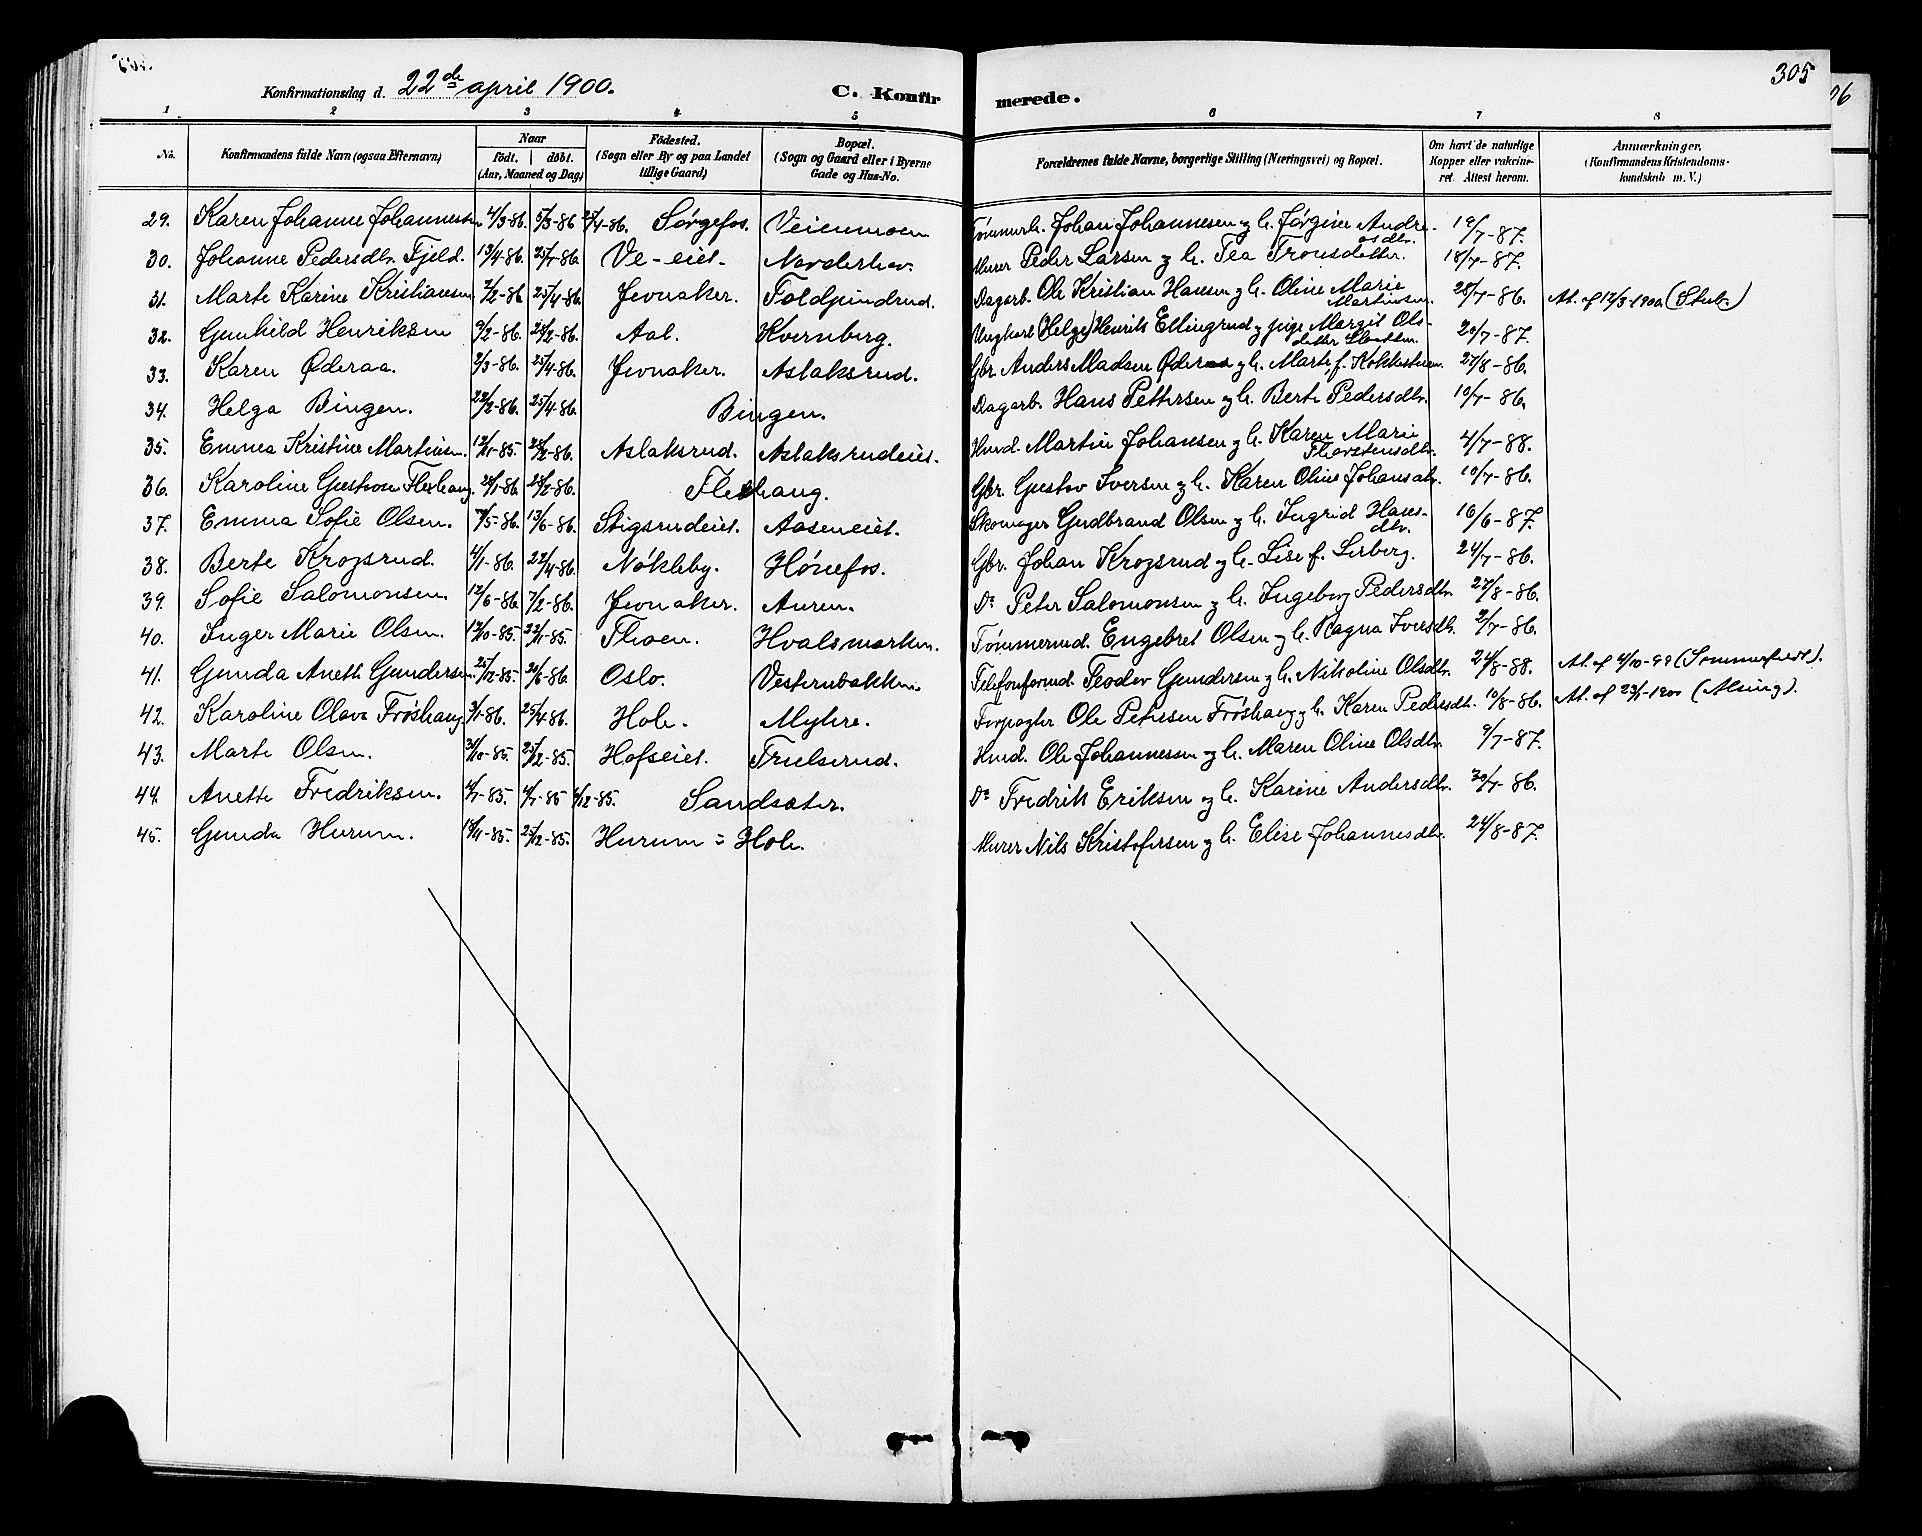 305
Konfirmationsdag d. 22de april 1900. C. Konfirmerede.
1 2 3 4 5 6 7 8
No. Konfirmandens fulde Navn (ogsaa Efternavn) Naar født. døbt. (Aar, Maaned og Dag) Fødested. (Sogn eller By og paa Landet tillige Gaard) Bopæl. (Sogn og Gaard eller i Byerne Gade og Hus-No. Forældrenes fulde Navne, borgerlige Stilling (Næringsvei) og Bopæl. Om havt de naturlige Kopper eller vakcineret. Attest herom. Anmærkninger. (Konfirmandens Kristendomskundskab m. V.)
29. Karen Johanne Johannessen 4/3-86. 5/3-86 /4-86. Sørgefos. Veienmoen Tømmerh. Johan Johannesen og h. Jørgine Andreasdtr. 19/7-87.
30. Johanne Pedersdtr. Fjeld. 13/4-86. 25/7-86. Ve-eiet. Norderhov. Murer Peder Larsen og h. Tea Tronsdatter. 18/7-87.
31. Marte Karine Kristiansen 7/2-86 25/4-86. Jevnaker. Foldpindrud. Dagarb. Ole Kristian Hansen og h. Oline Marie Martinsen. 28/7-86. At. af 12/3-1900 (Stub)
32. Gunhild Henriksen 9/2-86. 24/2-86. Aal. Kvernberg. Ungkarl (Helge) Henrik Ellingrud og pige Margit Olsdatter 20/7-87.
33. Karen Øderaa. 3/3-86. 25/4-86. Jevnaker. Aslaksrud. Gbr. Anders Madsen Øderaa og h. Marte, f. 27/8-86.
34. Helga Bingen. 22/2-86. 25/4-86. Bingen. Dagarb. Hans Pettersen og h. Berte Pedersdtr. 10/7-86.
35. Emma Kristine Martinsen. 12/11-85. 28/2-86. Aslaksrud. Aslaksrudeiet. Husd. Martin Johansen og h. Karen Marie Thorstensdtr. 4/7-88.
36. Karoline Gustava Fleskaug. 28/1-86. 28/2-86. Fleskaug. Gbr. Gustav Iversen og h. Karen Oline Johansdtr. 10/7-86.
37. Emma Sofie Olsen. /5-86. 13/6-86. Stigsrudeiet. Aaseneiet. Skomager Gudbrand Olsen og h. Ingrid Hansdtr. 16/6-87.
38. Berte Krogsrud. 4/1-86. 22/4-86. Nøkleby. Hønefos. Gbr. Johan Krogsrud og h. Lise f. Lerberg. 24/7-86.
39. Sofie Salomonsen. 12/6-86. 7/2-86. Jevnaker. Auren. Do Peter Salomonsen og h. Ingeborg Pedersdtr. 27/8-86.
40. Inger Marie Olsen. 12/10-85. 22/11-85. Thoen. Hvalsmarken. Tømmermd. Engebret Olsen og h. Ragna Iversdtr. 2/7-86.
41. Gunda Aneth Gundersen. 25/12-85. 20/6-86 Oslo. Vesternbakken. Telefonformd. Teodor Gundersen og h. Nikoline Olsdtr. 24/8-88. At. af 4/10-99 (Sommerfeldt).
42. Karoline Olava Frøshaug 3/1-86. 25/4-86. Hole. Myhre. Forpagter Ole Petersen Frøshaug og h. Karen Pedersdtr. 10/8-86. At. af 23/1-1900 (Alsing).
43. Marte Olsen. 31/10-85. 25/12-85. Hofseiet. Trulserud. Husmd. Ole Johannesen og h. Maren Oline Olsdtr. 9/7-87.
44. Anette Fredriksen. 4/7-85. 4/7-85 6/12-85. Sandsæter. Do Fredrik Eriksen og h. Karine Andersdtr. 30/7-86.
45. Gunda Hurum. 15/11-85. 25/12-85. Hurum = Hole. Murer Nils Kristofersen og h. Elise Johannesdtr. 24/8-87.